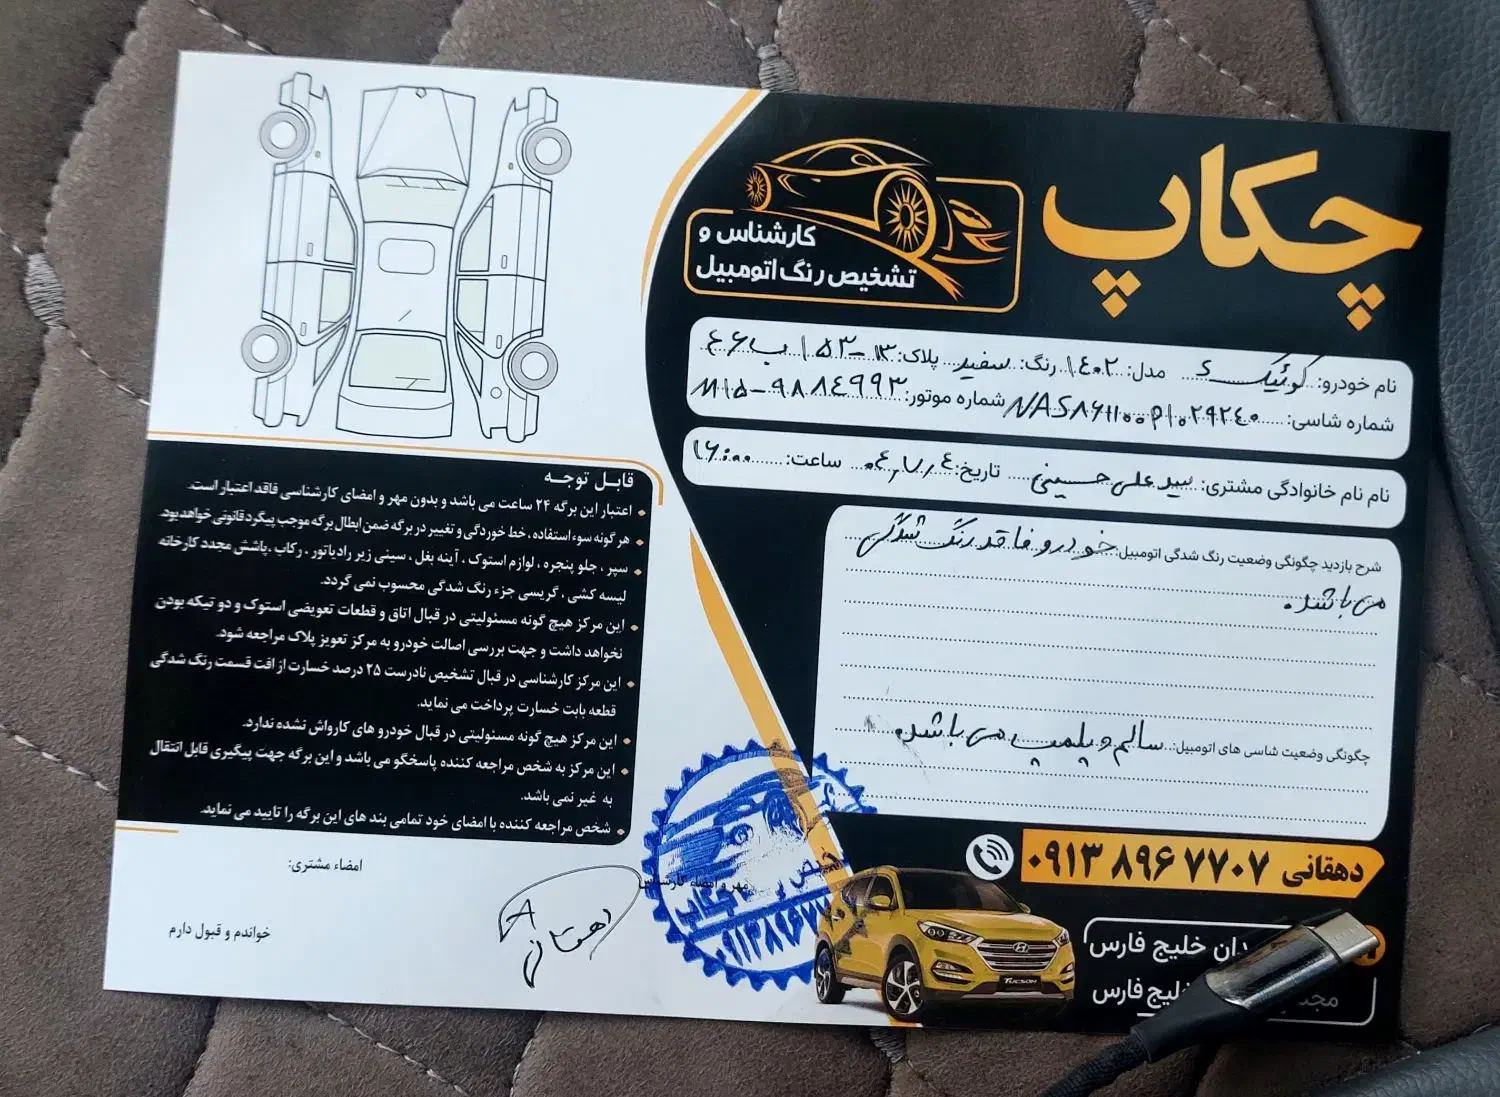 چکاپ
کارشناس و
تشخیص رنگ اتومبیل
نام خودرو: کوئیک S مدل: ۱۴۰۲ رنگ: سفید پلاک: ۱۳-۵۳ ا ب ۴۶
شماره شاسی: NAS۸۶۱۱۰۰P۱۰۲۹۲۴۰ شماره موتور: M۱۵-۹۸۸۴۹۹۳
نام نام خانوادگی مشتری: سید علی حسینی تاریخ: ۰۴٫۷٫۴ ساعت: ۱۶:۰۰
شرح بازدید چگونگی وضعیت رنگ شدگی اتومبیل: خودرو فاقد رنگ شدگی
می باشد.
چگونگی وضعیت شاسی های اتومبیل: سالم و پلمپ می باشد.
دهقانی ۰۹۱۳ ۸۹۶ ۷۷۰۷
خلیج فارس
خلیج فارس
TUCSON
قابل توجه
اعتبار این برگه ۲۴ ساعت می باشد و بدون مهر و امضای کارشناسی فاقد اعتبار است.
هر گونه سوء استفاده، خط خوردگی و تغییر در برگه ضمن ابطال برگه موجب پیگرد قانونی خواهد بود.
سپر ، جلو پنجره ، لوازم استوک ، آینه بغل ، سینی زیر رادیاتور ، رکاب ، پاشش مجدد کارخانه
لیسه کشی ، گریسی جزء رنگ شدگی محسوب نمی گردد.
این مرکز هیچ گونه مسئولیتی در قبال اتاق و قطعات تعویضی استوک و دو تیکه بودن
نخواهد داشت و جهت بررسی اصالت خودرو به مرکز تعویز پلاک مراجعه شود.
این مرکز کارشناسی در قبال تشخیص نادرست ۲۵ درصد خسارت از افت قسمت رنگ شدگی
قطعه بابت خسارت پرداخت می نماید.
این مرکز هیچ گونه مسئولیتی در قبال خودرو های کارواش نشده ندارد.
این مرکز به شخص مراجعه کننده پاسخگو می باشد و این برگه جهت پیگیری قابل انتقال
به غیر نمی باشد.
شخص مراجعه کننده با امضای خود تمامی بند های این برگه را تایید می نماید.
امضاء مشتری:
مهر و امضاء کارشناس
خواندم و قبول دارم
دهقانی
چکاپ
۰۹۱۳۸۹۶۷۷